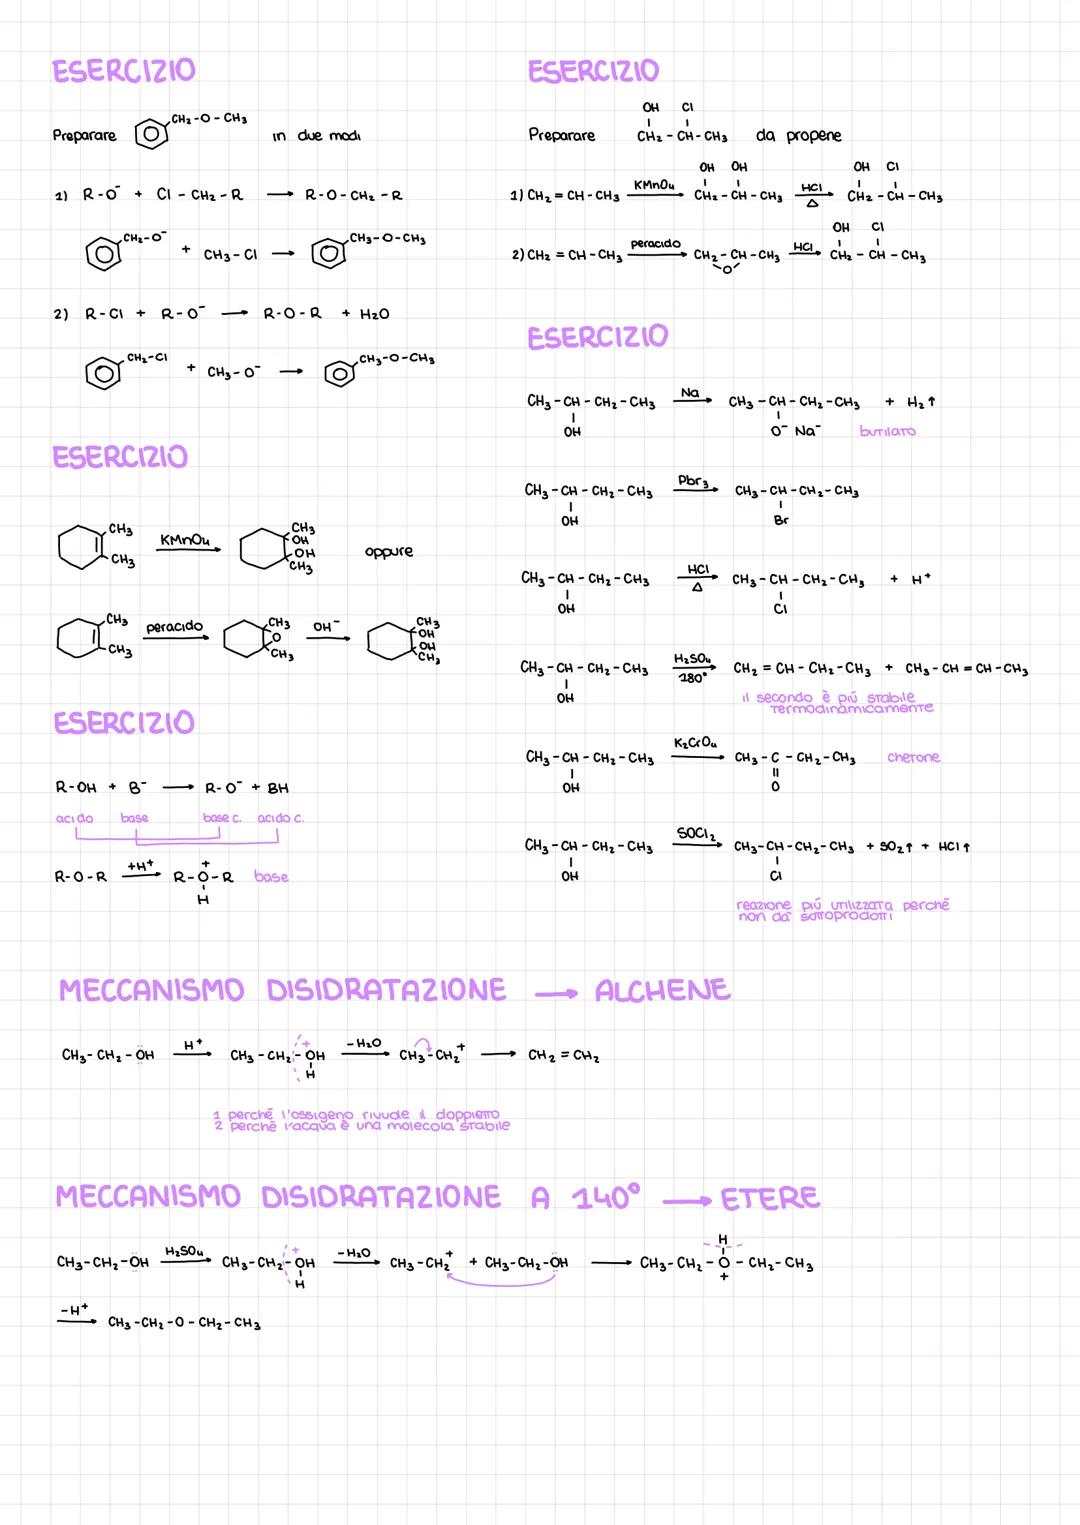 ESERCIZIO
Preparare CH₂-O-CH₃ in due modi
1) R-O⁻ + Cl-CH₂-R → R-O-CH₂-R
CH₂-O⁻ + CH₃-Cl → CH₃-O-CH₃
2) R-Cl + R-O⁻ → R-O-R + H₂O
CH₂-Cl + CH₃-O⁻ → CH₃-O-CH₃
ESERCIZIO
CH₃ CH₃ KMnO₄ CH₃ OH OH CH₃ oppure
CH₃ CH₃ peracido CH₃ O CH₃ OH⁻ CH₃ OH OH CH₃
ESERCIZIO
R-OH + B⁻ → R-O⁻ + BH
acido base base c. acido c.
R-O-R +H⁺ → R-O-R base
+
H
ESERCIZIO
OH Cl
Preparare CH₂-CH-CH₃ da propene
OH OH OH Cl
1) CH₂=CH-CH₃ KMnO₄ → CH₂-CH-CH₃ HCl Δ → CH₂-CH-CH₃
OH Cl
2) CH₂=CH-CH₃ peracido → CH₂-CH-CH₃ HCl → CH₂-CH-CH₃
O
ESERCIZIO
CH₃-CH-CH₂-CH₃ Na → CH₃-CH-CH₂-CH₃ + H₂↑
OH O⁻ Na⁻ butilato
CH₃-CH-CH₂-CH₃ Pbr₃ → CH₃-CH-CH₂-CH₃
OH Br
CH₃-CH-CH₂-CH₃ HCl Δ → CH₃-CH-CH₂-CH₃ + H⁺
OH Cl
CH₃-CH-CH₂-CH₃ H₂SO₄ 180° → CH₂=CH-CH₂-CH₃ + CH₃-CH=CH-CH₃
OH il secondo è più stabile
termodinamicamente
CH₃-CH-CH₂-CH₃ K₂CrO₄ → CH₃-C-CH₂-CH₃ chetone
OH O
CH₃-CH-CH₂-CH₃ SOCl₂ → CH₃-CH-CH₂-CH₃ + SO₂↑ + HCl↑
OH Cl
reazione più utilizzata perché
non dà sottoprodotti
MECCANISMO DISIDRATAZIONE → ALCHENE
CH₃-CH₂-ÖH H⁺ → CH₃-CH₂-OH -H₂O → CH₃-CH₂⁺ → CH₂=CH₂
+
H
1 perché l'ossigeno rivuole il doppietto
2 perché l'acqua è una molecola stabile
MECCANISMO DISIDRATAZIONE A 140° → ETERE
CH₃-CH₂-ÖH H₂SO₄ → CH₃-CH₂-OH -H₂O → CH₃-CH₂⁺ + CH₃-CH₂-ÖH → CH₃-CH₂-O-CH₂-CH₃
+ H H +
-H⁺ → CH₃-CH₂-O-CH₂-CH₃